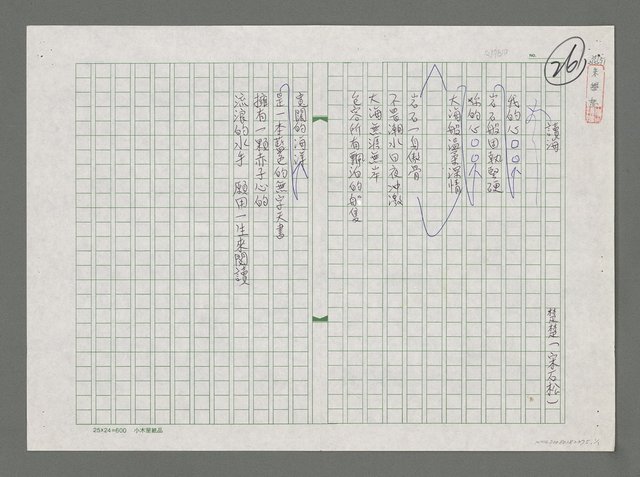 26
NO.
讀海
楚楚(宋石松)
我的心
岩石般固執堅硬
妳的心
大海般溫柔深情
岩石一身傲骨
不畏潮水日夜沖激
大海無涯無岸
包容所有飄泊的船隻
寬闊的海洋
是一本藍色的無字天書
擁有一顆赤子心的
流浪的水手 願用一生來閱讀
25×24=600 小木屋紙品